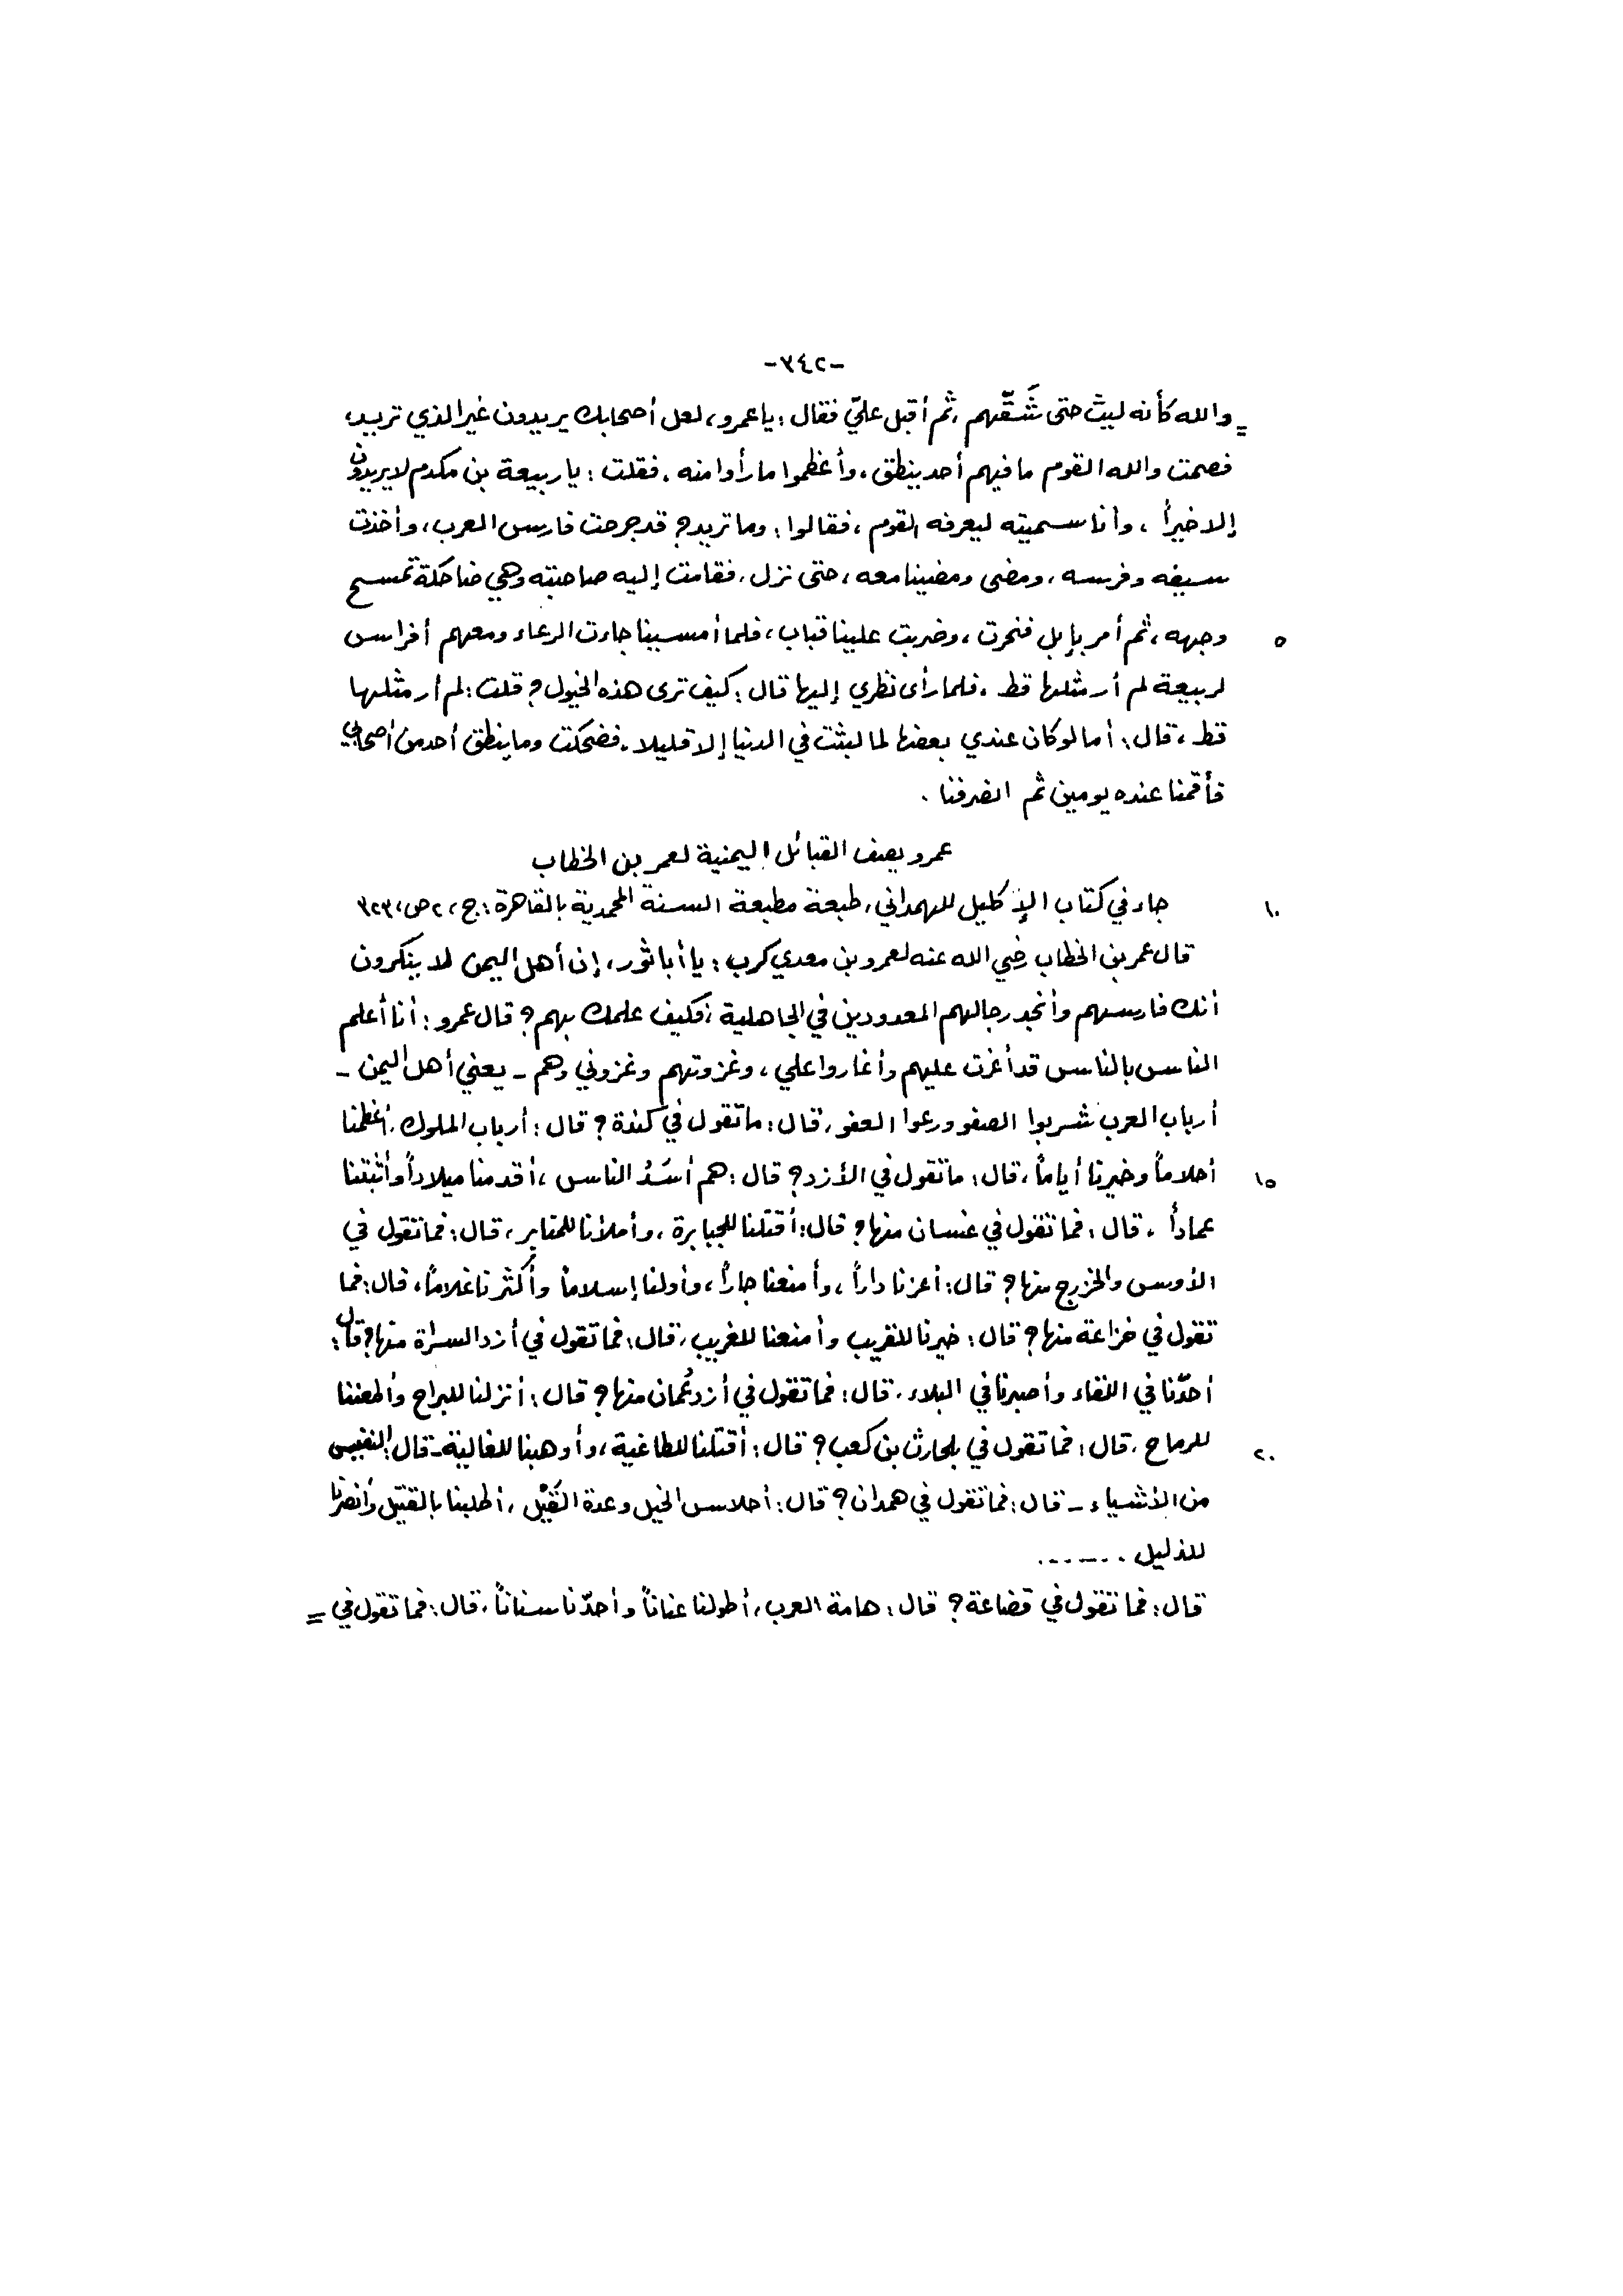 -٣٤٢-
= والله كأنه ليث حتى شَقَّهم، ثم أقبل عليّ فقال: ياعمرو، لعل أصحابك يريدون غير الذي تريد،
فصمت والله القوم ما فيهم أحد ينطق، وأعظموا ما رأوا منه. فقلت: يا ربيعة بن مكدم لا يريدون
إلا خيراً، وأنا سميته ليعرفه القوم، فقالوا: وما تريد؟ قد جرحت فارس العرب، وأخذت
سيفه وفرسه، ومضى ومضينا معه، حتى نزل، فقامت إليه صاحبته وهي ضاحكة تمسح
٥ وجهه، ثم أمر بإبل فنحرت، وضربت علينا قباب، فلما أمسينا جاءت الرعاء ومعهم أفراس
لربيعة لم أر مثلها قط، فلما رأى نظري إليها قال: كيف ترى هذه الخيول؟ قلت: لم أر مثلها
قط، قال: أما لو كان عندي بعضها لما لبثت في الدنيا إلا قليلا. فضحكت وما ينطق أحد من أصحابي
فأقمنا عنده يومين ثم انصرفنا.
عمرو يصف القبائل اليمنية لعمر بن الخطاب
١٠ جاء في كتاب الإكليل للهمداني، طبعة مطبعة السنة المحمدية بالقاهرة: ج، ٢ ص، ٣٢٣
قال عمر بن الخطاب رضي الله عنه لعمرو بن معدي كرب: يا أبا ثور، إن أهل اليمن لا ينكرون
أنك فارسهم وأنجد رجالهم المعدودين في الجاهلية، فكيف علمك بهم؟ قال عمرو: أنا أعلم
الناس بالناس قد أغرت عليهم وأغاروا علي، وغزوتهم وغزوني وهم - يعني أهل اليمن -
أرباب العرب شربوا الصفو ورعوا العفو، قال: ما تقول في كندة؟ قال: أرباب الملوك، أعظمنا
١٥ أحلاماً وخيرنا أياماً، قال: ما تقول في الأزد؟ قال: هم أسَدُ الناس، أقدمنا ميلاداً وأثبتنا
عماداً. قال: فما تقول في غسان منها؟ قال: أقتلنا للجبابرة، وأملأنا للمقابر، قال: فما تقول في
الأوس والخزرج منها؟ قال: أعزنا داراً، وأمنعنا جاراً، وأولنا إسلاماً وأكثرنا غلاماً، قال: فما
تقول في خزاعة منها؟ قال: خيرنا للقريب وأمنعنا للغريب، قال: فما تقول في أزد السراة منها؟ قال:
أحدّنا في اللقاء وأصبرنا في البلاء. قال: فما تقول في أزد عُمان منها؟ قال: أنزلنا للبراح وأطعننا
٢٠ للرماح، قال: فما تقول في بلحارث بن كعب؟ قال: أقتلنا للطاغية، وأوهبنا للغالية - قال: النفيس
من الأشياء - قال: فما تقول في همدان؟ قال: أحلاس الخيل وعدة القَيْل، أطلبنا بالقتيل وأنصرنا
للذليل .......
قال: فما تقول في قضاعة؟ قال: هامة العرب، أطولنا عناناً وأحدّنا سناناً، قال: فما تقول في =